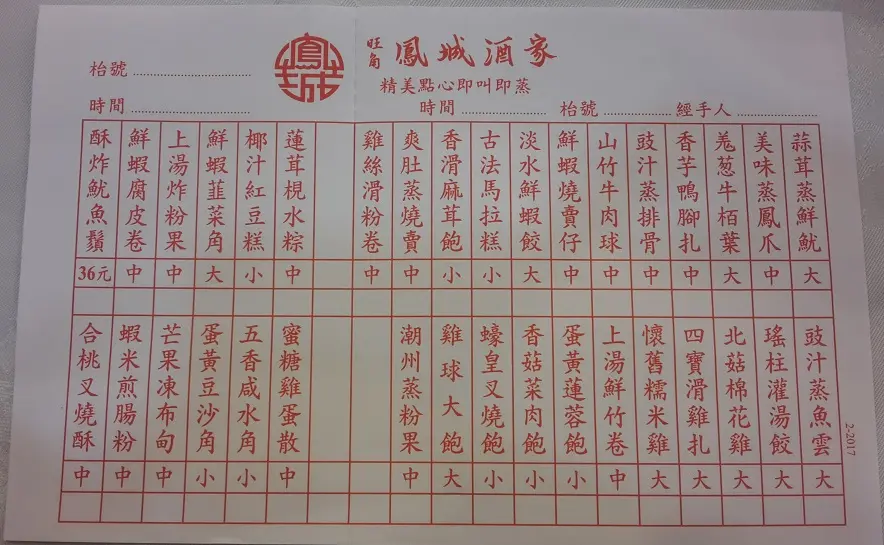 旺角 鳳城酒家
精美點心即叫即蒸
枱號
時間
時間 枱號 經手人
蒜茸蒸鮮魷 大
美味蒸鳳爪 中
羗葱牛栢葉 大
香芋鴨腳扎 中
豉汁蒸排骨 中
山竹牛肉球 中
鮮蝦燒賣仔 中
淡水鮮蝦餃 大
古法馬拉糕 小
香滑麻茸飽 小
爽肚蒸燒賣 中
雞絲滑粉卷 中
蓮茸梘水粽 中
椰汁紅豆糕 小
鮮蝦韮菜角 大
上湯炸粉果 中
鮮蝦腐皮卷 中
酥炸魷魚鬚 36元
豉汁蒸魚雲 大
瑤柱灌湯餃 大
北菇棉花雞 大
四寶滑雞扎 大
懷舊糯米雞 大
上湯鮮竹卷 中
蛋黃蓮蓉飽 小
香菇菜肉飽 小
蠔皇叉燒飽 小
雞球大飽 大
潮州蒸粉果 中
蜜糖雞蛋散 中
五香咸水角 小
蛋黃豆沙角 小
芒果凍布甸 中
蝦米煎腸粉 中
合桃叉燒酥 中
2-2017